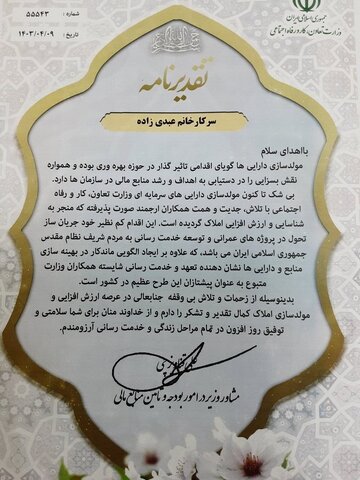 جمهوری اسلامی ایران
وزارت تعاون، کار و رفاه اجتماعی
شماره : ۵۵۵۴۳
تاریخ : ۱۴۰۳/۰۴/۰۹
تقدیرنامه
سرکار خانم عبدی زاده
بااهدای سلام
مولدسازی دارایی ها گویای اقدامی تاثیر گذار در حوزه بهره وری بوده و همواره
نقش بسزایی را در دستیابی به اهداف و رشد منابع مالی در سازمان ها دارد.
بی شک تا کنون مولدسازی دارایی های سرمایه ای وزارت تعاون، کار و رفاه
اجتماعی با تلاش، جدیت و همت همکاران ارجمند صورت پذیرفته که منجر به
شناسایی و ارزش افزایی املاک گردیده است. این اقدام کم نظیر خود جریان ساز
تحول در پروژه های عمرانی و توسعه خدمت رسانی به مردم شریف نظام مقدس
جمهوری اسلامی ایران می باشد، که علاوه بر ایجاد الگویی ماندگار در بهینه سازی
منابع و دارایی ها نشان دهنده تعهد و خدمت رسانی شایسته همکاران وزارت
متبوع به عنوان پیشتازان این طرح عظیم در کشور است.
بدینوسیله از زحمات و تلاش بی وقفه جنابعالی در عرصه ارزش افزایی و
مولدسازی املاک کمال تقدیر و تشکر را دارم و از خداوند منان برای شما سلامتی و
توفیق روز افزون در تمام مراحل زندگی و خدمت رسانی آرزومندم.
مشاور وزیر در امور بودجه و تأمین منابع مالی